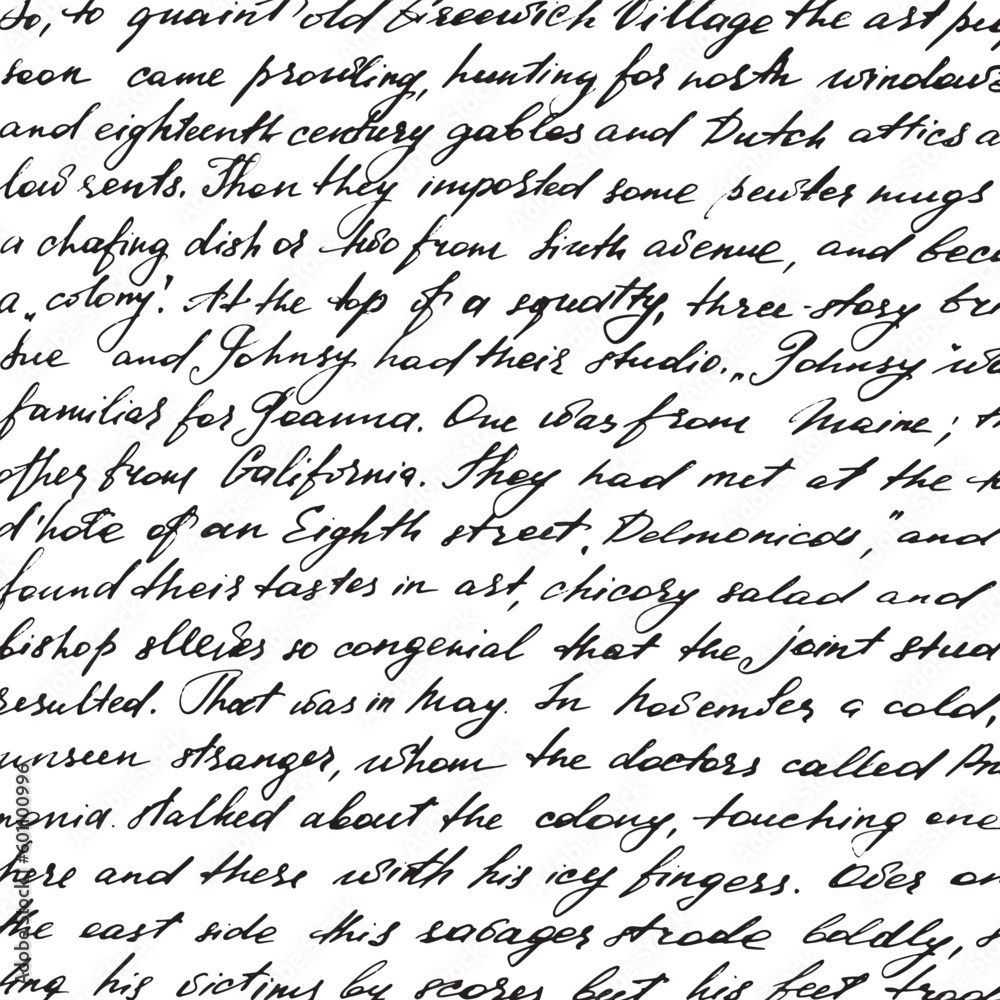 So, to quaint old Greenwich Village the art peo
soon came prowling, hunting for north windows
and eighteenth century gables and Dutch attics a
low rents. Then they imported some pewter mugs
a chafing dish or two from Sixth avenue, and beca
a „colony". At the top of a squatty, three-story bri
Sue and Johnsy had their studio. „Johnsy" wa
familiar for Joanna. One was from Maine; th
other from California. They had met at the t
d'hote of an Eighth street „Delmonicos," and
found their tastes in art, chicory salad and
bishop sleeves so congenial that the joint stud
resulted. That was in May. In November a cold,
unseen stranger, whom the doctors called Pneu
monia. Stalked about the colony, touching one
here and there with his icy fingers. Over on
the east side this savager strode boldly, s
ting his victims by scores but his feet trod
Adobe Stock | #601100996